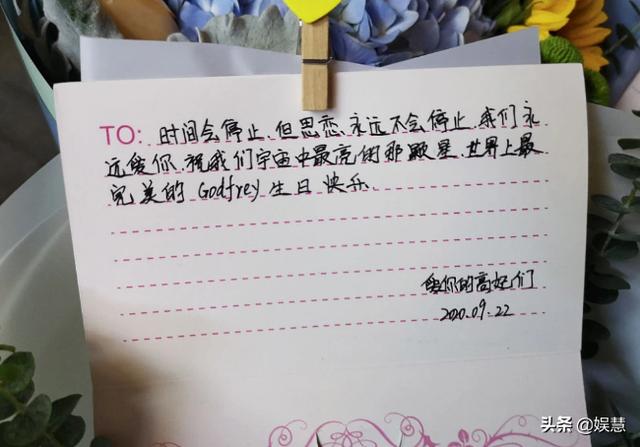 TO: 时间会停止、但思恋、永远不会停止、我们永
远爱你、祝我们宇宙中最亮的那颗星、世界上最
完美的 Godfrey 生日 快乐、
爱你的高妃们
2020.09.22
头条 @娱慧